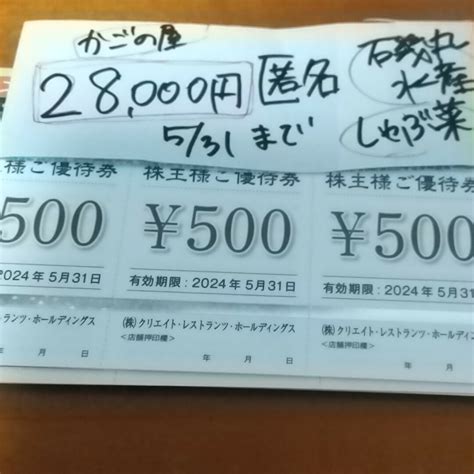 かごの屋
28,000円 匿名
5/31まで
石丸水産
しゃぶ菜
株主様ご優待券 株主様ご優待券 株主様ご優待券
500 ¥500 ¥500
2024年5月31日 有効期限:2024年5月31日 有効期限:2024年5月31日
レストランツ・ホールディングス ㈱クリエイト・レストランツ・ホールディングス ㈱クリエイト・レストランツ・ホールディングス
<店舗押印欄> <店舗押印欄>
年 月 日 年 月 日 年 月 日